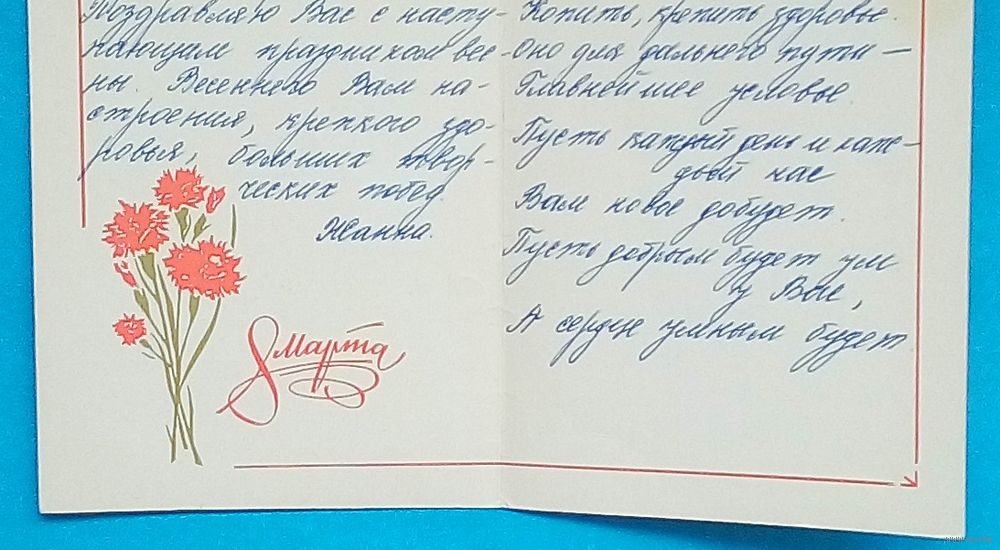 Поздравляю Вас с насту-
пающим праздником вес-
ны. Весеннего Вам на-
строения, крепкого здо-
ровья, больших твор-
ческих побед.
Жанна.
8 Марта
Копить, крепить здоровье.
Оно для дальнего пути —
Главнейшее условье.
Пусть каждый день и каж-
дый час
Вам новое добудет.
Пусть добрым будет ум
у Вас,
А сердце умным будет.